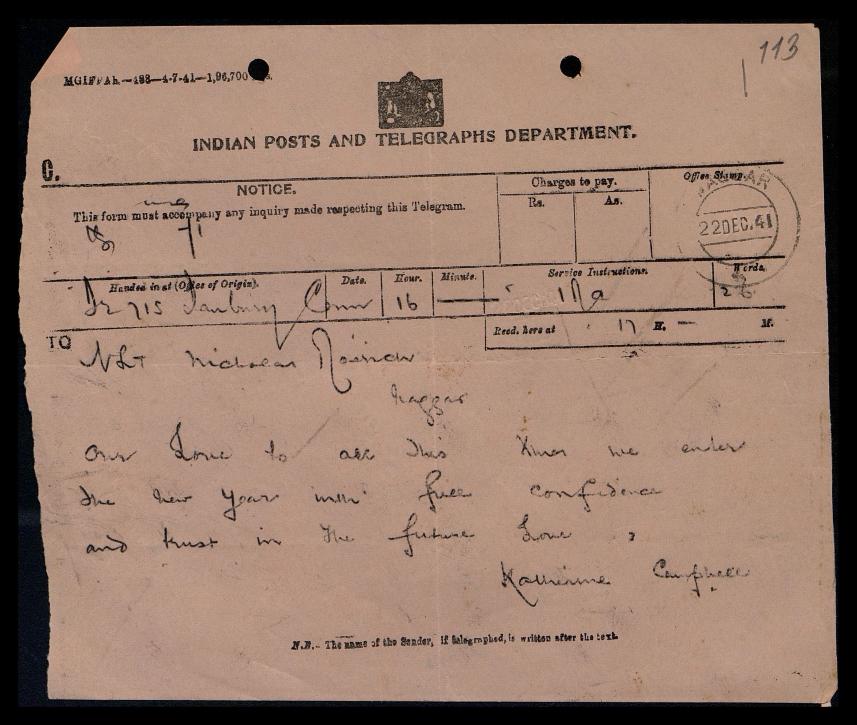 113
MGIPFAh.—488—4-7-41—1,96,700
INDIAN POSTS AND TELEGRAPHS DEPARTMENT.
C.
NOTICE.
This form must accompany any inquiry made respecting this Telegram.
Charges to pay.
Rs. As.
Office Stamp.
NAGGAR
22 DEC. 41
Handed in at (Office of Origin). Date. Hour. Minute. Service Instructions. Words.
715 Danbury Conn 16 26
Recd. here at 17 H. — M.
TO
NLT Nicholas Roerich
Naggar
Our Love to all this Xmas we enter
the New Year with full confidence
and trust in the future Love
Katherine Campbell
N.B.—The name of the Sender, if telegraphed, is written after the text.